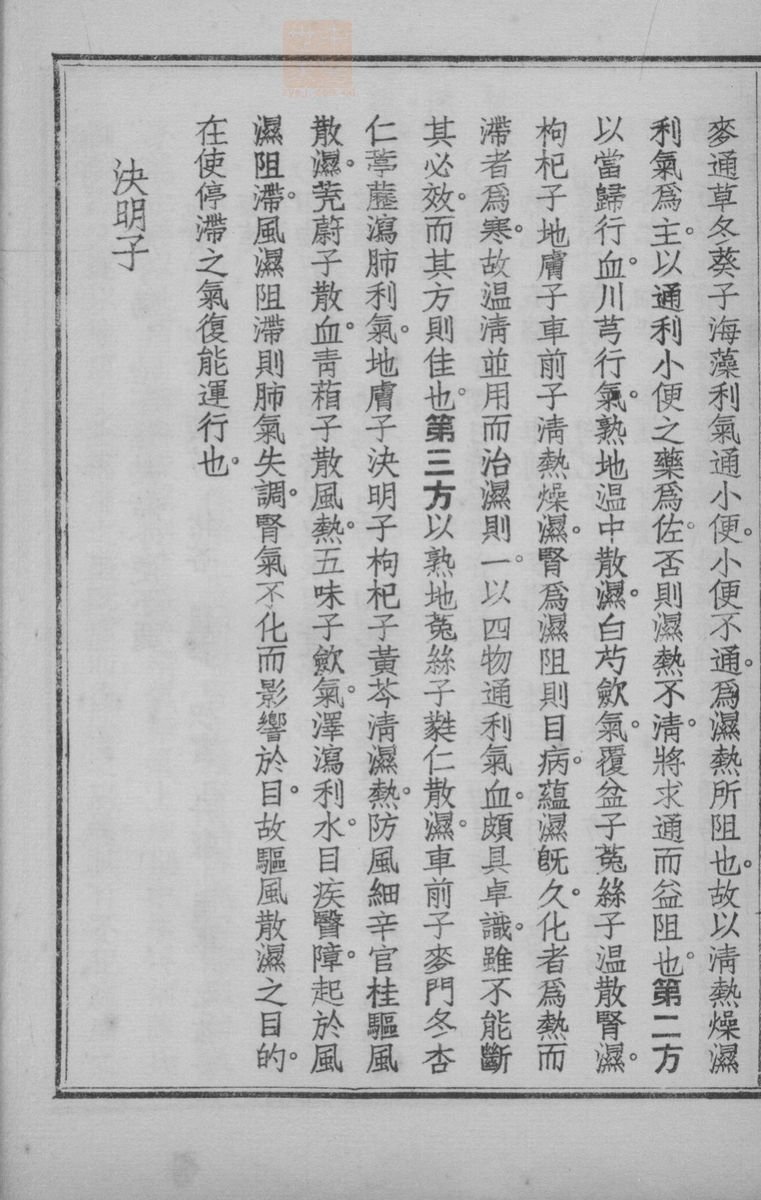 麥通草冬葵子海藻利氣通小便。小便不通。爲濕熱所阻也。故以清熱燥濕
利氣爲主。以通利小便之藥爲佐。否則濕熱不清。將求通而益阻也。第二方
以當歸行血。川芎行氣。熟地温中散濕。白芍歛氣。覆盆子菟絲子温散腎濕。
枸杞子地膚子車前子清熱燥濕。腎爲濕阻則目病。蘊濕旣久。化者爲熱而
滯者爲寒。故温清並用而治濕則一。以四物通利氣血。頗具卓識。雖不能斷
其必效。而其方則佳也。第三方以熟地菟絲子蕤仁散濕。車前子麥門冬杏
仁葶藶瀉肺利氣。地膚子決明子枸杞子黃芩清濕熱。防風細辛官桂驅風
散濕。茺蔚子散血。青葙子散風熱。五味子歛氣。澤瀉利水。目疾醫障。起於風
濕阻滯。風濕阻滯則肺氣失調。腎氣不化而影響於目。故驅風散濕之目的。
在使停滯之氣復能運行也。
決明子